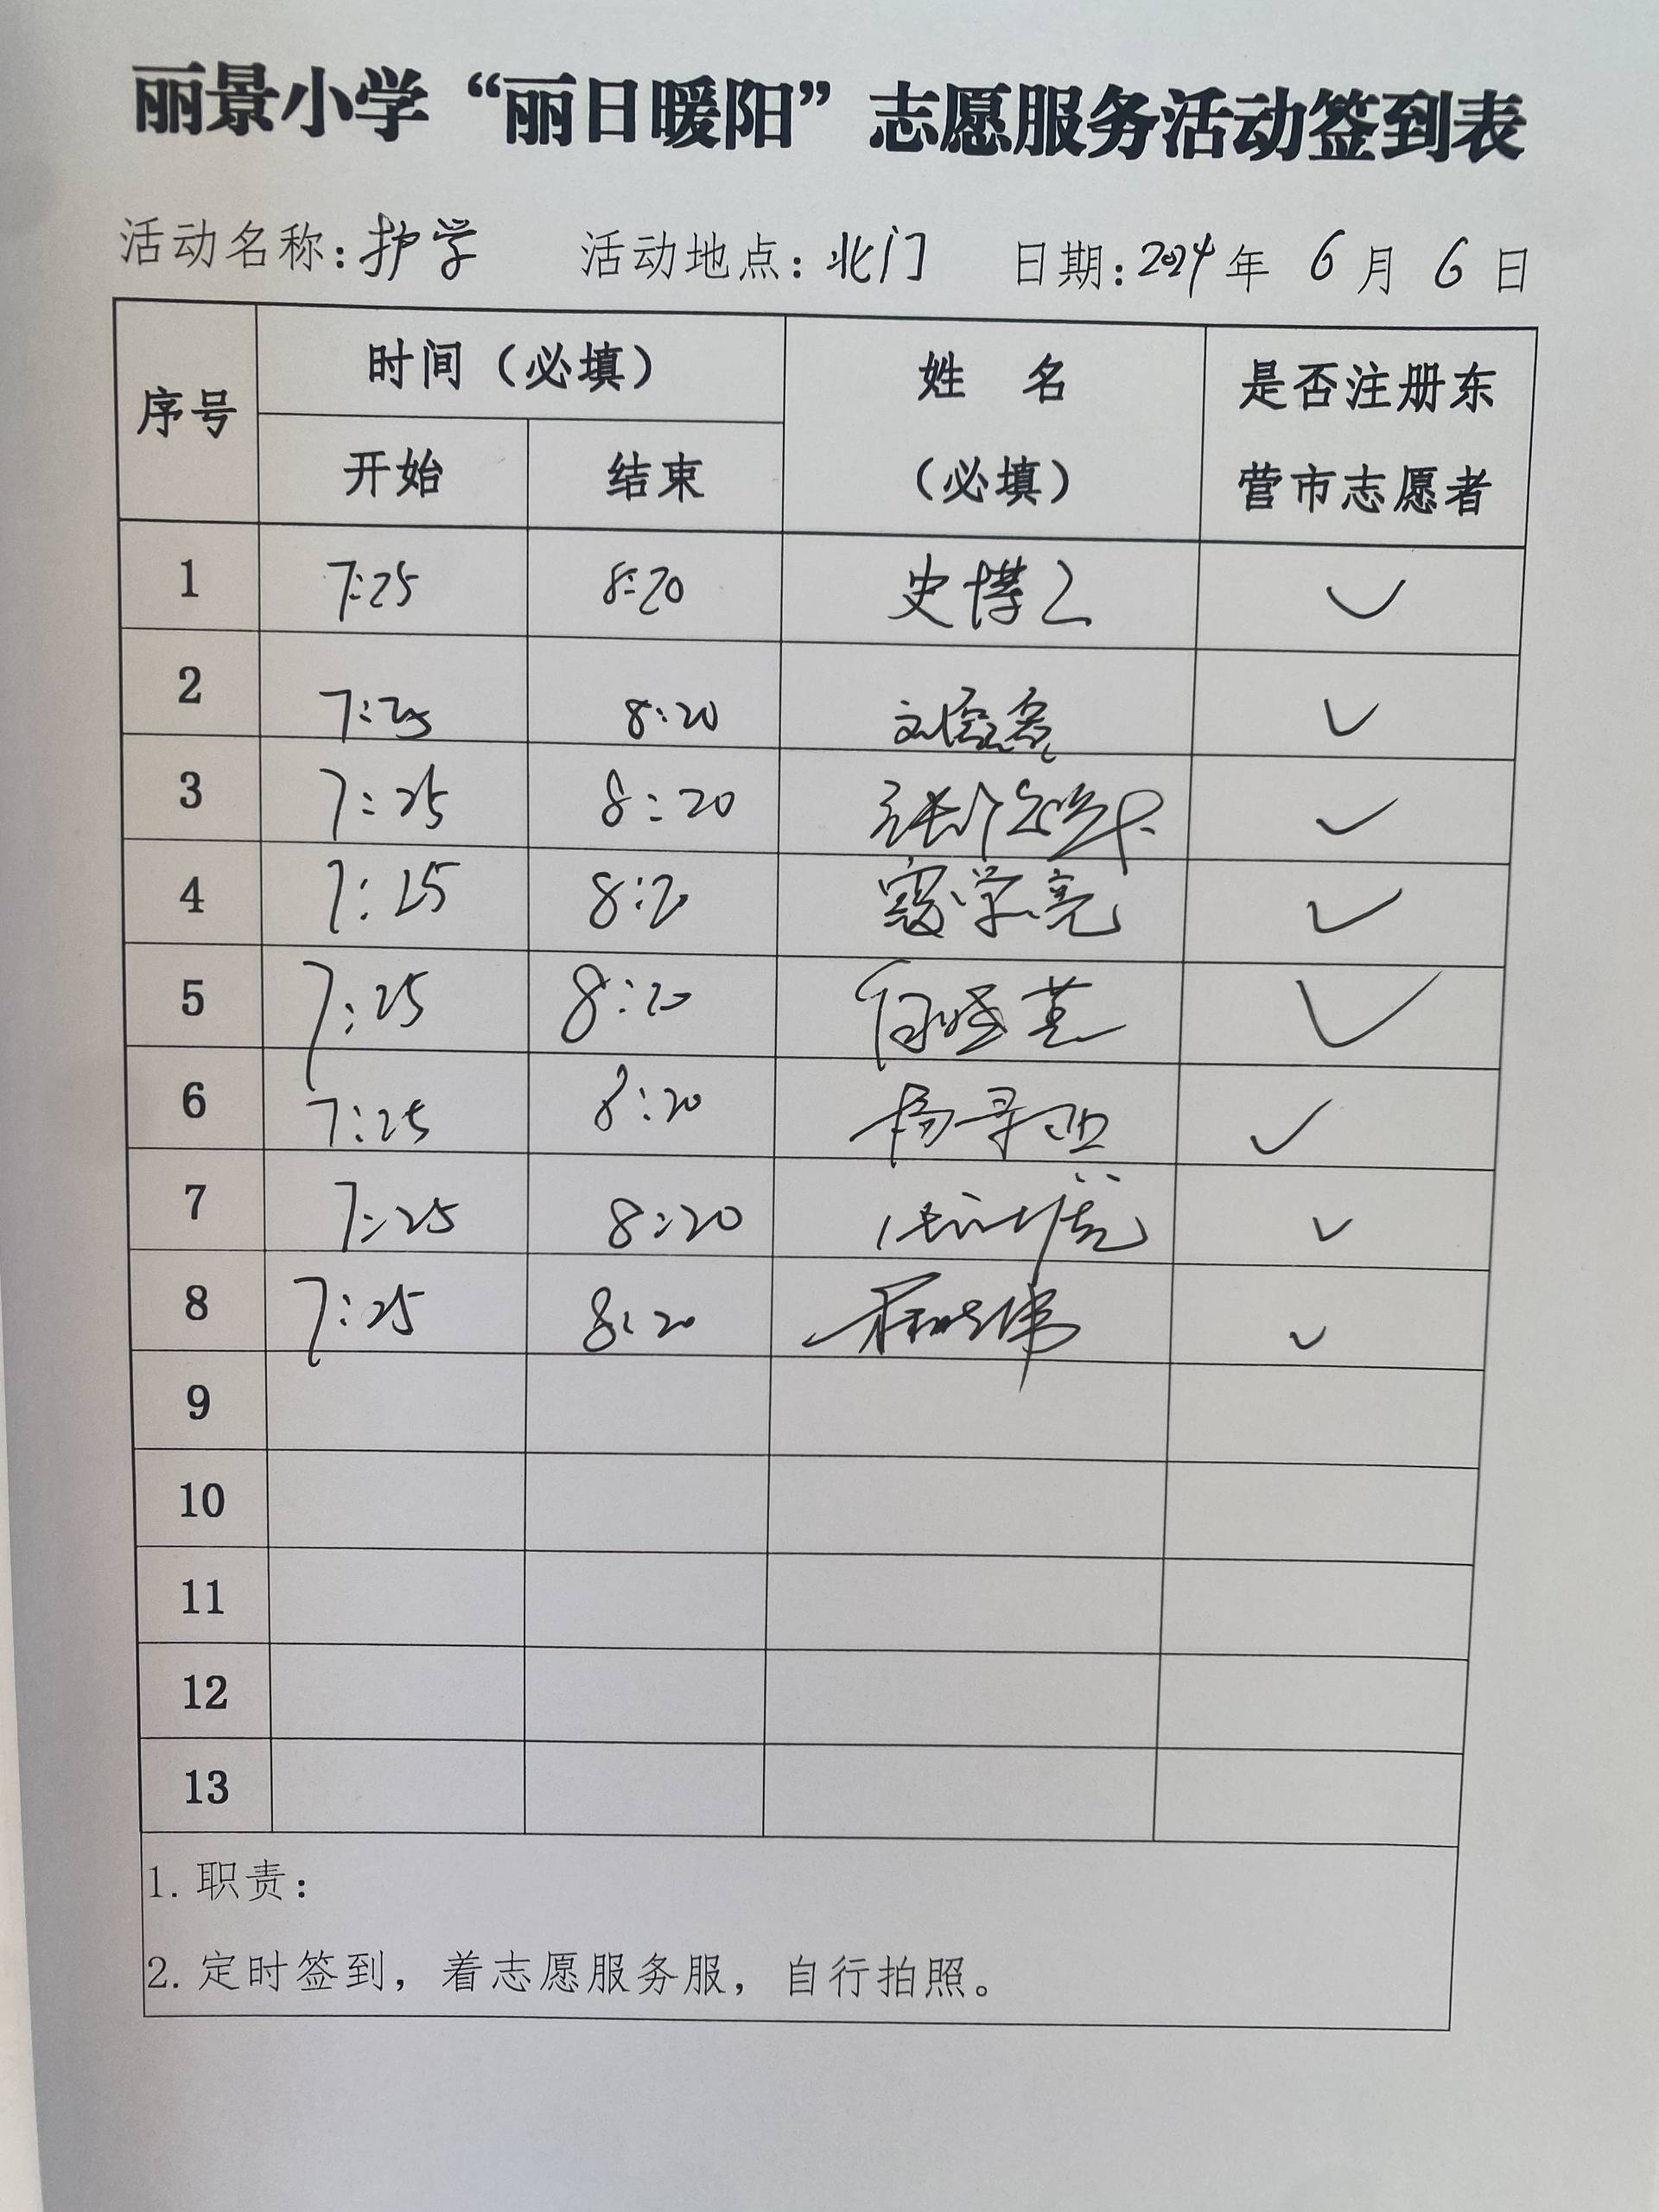 丽景小学“丽日暖阳”志愿服务活动签到表
活动名称:护学 活动地点:北门 日期:2024年 6 月 6 日
序号 时间（必填） 姓 名（必填） 是否注册东营市志愿者
开始 结束
1 7:25 8:20 史 ✓
2 7:25 8:20 ✓
3 7:25 8:20 张 ✓
4 7:25 8:20 寇学亮 ✓
5 7:25 8:20 ✓
6 7:25 8:20 杨 ✓
7 7:25 8:20 ✓
8 7:25 8:20 ✓
9
10
11
12
13
1. 职责:
2. 定时签到，着志愿服务服，自行拍照。